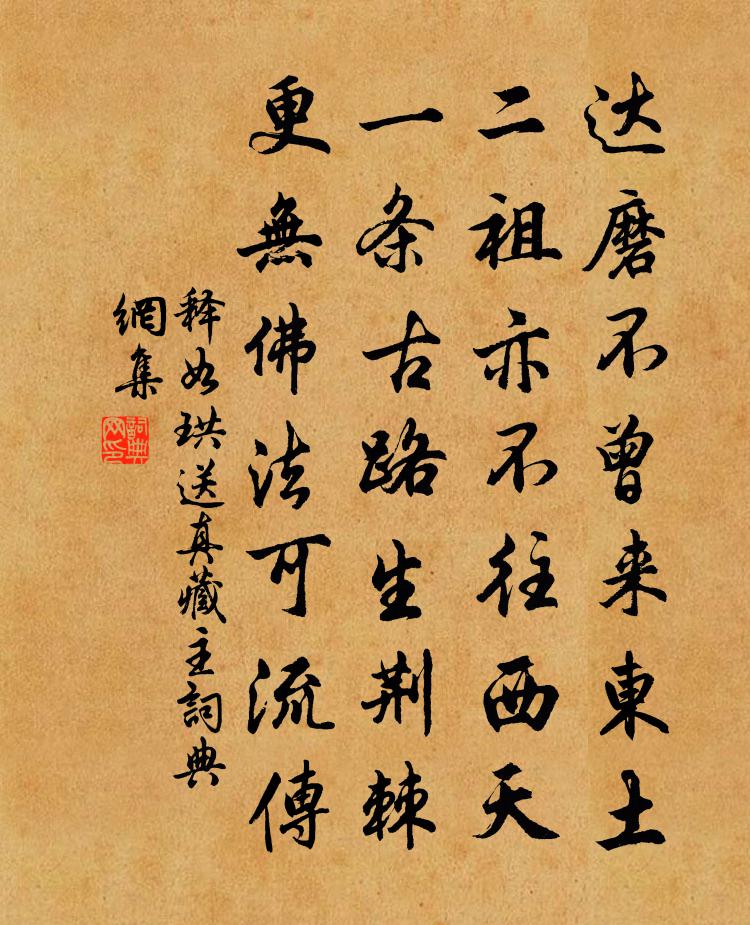 达磨不曾来東土
二祖亦不往西天
一条古路生荆棘
更無佛法可流傳
释如珙送真藏主詞典
網集
詞典
网印